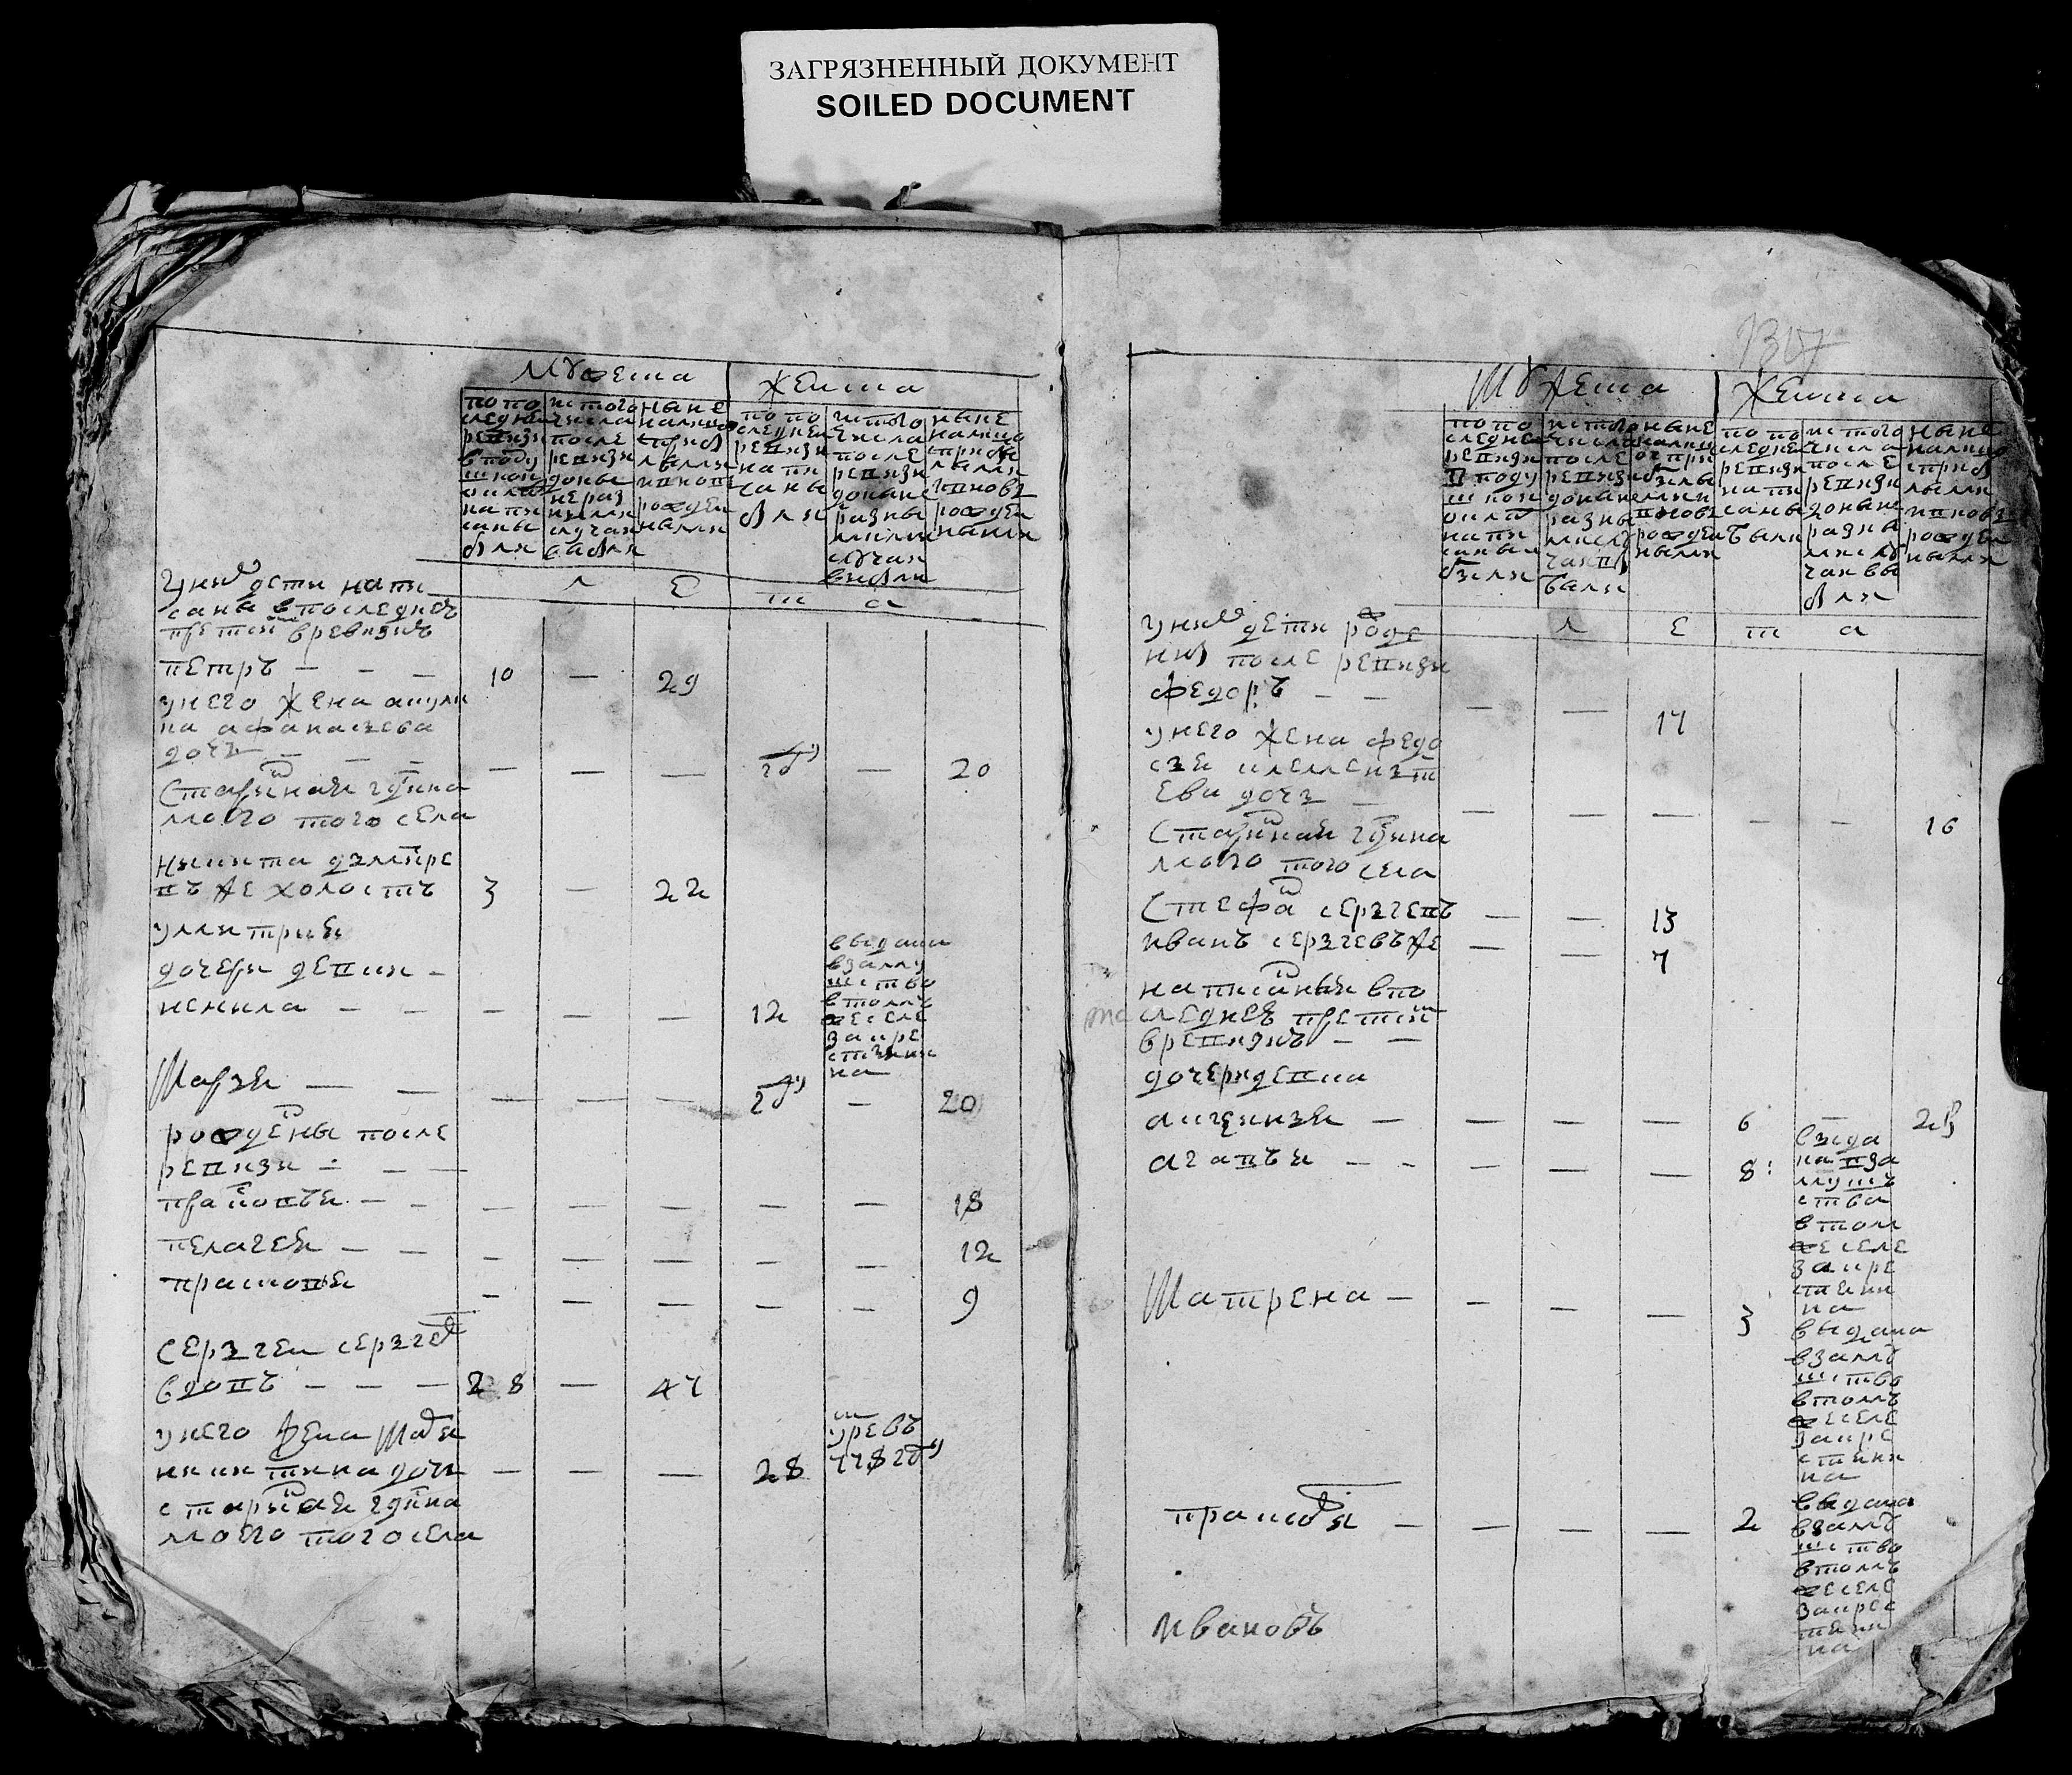 ЗАГРЯЗНЕННЫЙ ДОКУМЕНТ
SOILED DOCUMENT
мужеска женска
по по
следней
ревизии
в поду
шной
написаны
были
ис того
числа
после
ревизии
доныне раз
ными
случая
ныне
на лицо
с прибы
лыми
и внов
рожден
ными
по по
следней
ревизии
напи
саны
были
ис того
числа
после
ревизии
доныне
разны
ми
случаи
выбыли
ныне
на лицо
с прибы
лыми
и вновь
рожден
ными
л е т а
у них дети напи
саны в последнеъ
претй вревизиъ
петръ — — — 10 — 29
у него жена акули
на афанасьева
дочь — — — — — — 20
старинная гдина
моего того села
никита дмитре
въ же холостъ 3 — 22
у митрия
дочери девки —
ненила — — — — — 12
выдана
взаму
жство
втомъ
же селе
за кре
стьяни
на
Марья — — — — — — 20
рождены после
ревизи — — —
прасковья — — — — — — — 18
пелагея — — — — — — — 12
прасковья — — — — — 9
Сергеи сергее
вдовъ — — — 28 — 47
у него жена Мавря
никитина дочь — — — 28
умре въ
778 году
старинная гдина
моего того села
1307
Мужеска Женска
по по
следней
ревизии
в поду
шной
напи
саны
были
ис того
числа
после
ревизии
доныне
разны
ми слу
чаи
были
ныне
налицо
с при
были
ми и
внов
рожден
ными
по по
следней
ревизии
напи
саны
были
ис того
числа
после
ревизии
доныне
разны
ми слу
чаи вы
были
ныне
налицо
с прибы
лыми
и вновь
рожден
ными
л е т а
у них дети роже
ны после ревизи
федоръ — — — — 17
у него жена федо
сья климентъ
ева дочь — — — — — — 16
старинная гдина
моего того села
Стефан сергеевъ — — 13
иванъ сергеевъ же — — 7
написаныя впо
следнеъ претй
вревизиъ — —
дочери девки
аксинья — — — — — 6 —
агафья — — — — — 8
выда
на вза
мужъ
ства
в том
же селе
за кре
стьяни
на
Матрена — — — — — 3
выдана
взамъ
жство
втомъ
же селе
закре
стьяни
на
прасковья — — — — 2
выдана
взамъ
жство
втомъ
же селе
за крес
тьяни
на
Ивановъ